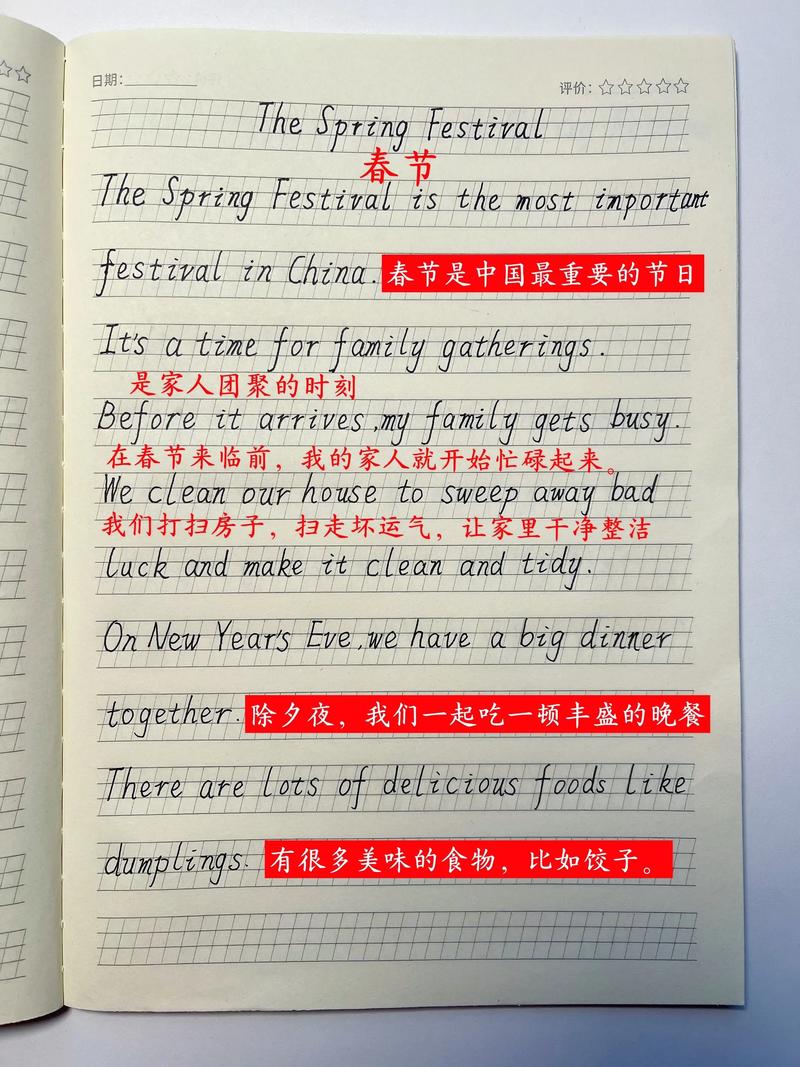 日期:
评价: ☆☆☆☆☆
The Spring Festival
春节
The Spring Festival is the most important
festival in China. 春节是中国最重要的节日
It's a time for family gatherings.
是家人团聚的时刻
Before it arrives,my family gets busy.
在春节来临前，我的家人就开始忙碌起来。
We clean our house to sweep away bad
我们打扫房子，扫走坏运气，让家里干净整洁
luck and make it clean and tidy.
On New Year's Eve,we have a big dinner
together. 除夕夜，我们一起吃一顿丰盛的晚餐
There are lots of delicious foods like
dumplings. 有很多美味的食物，比如饺子。